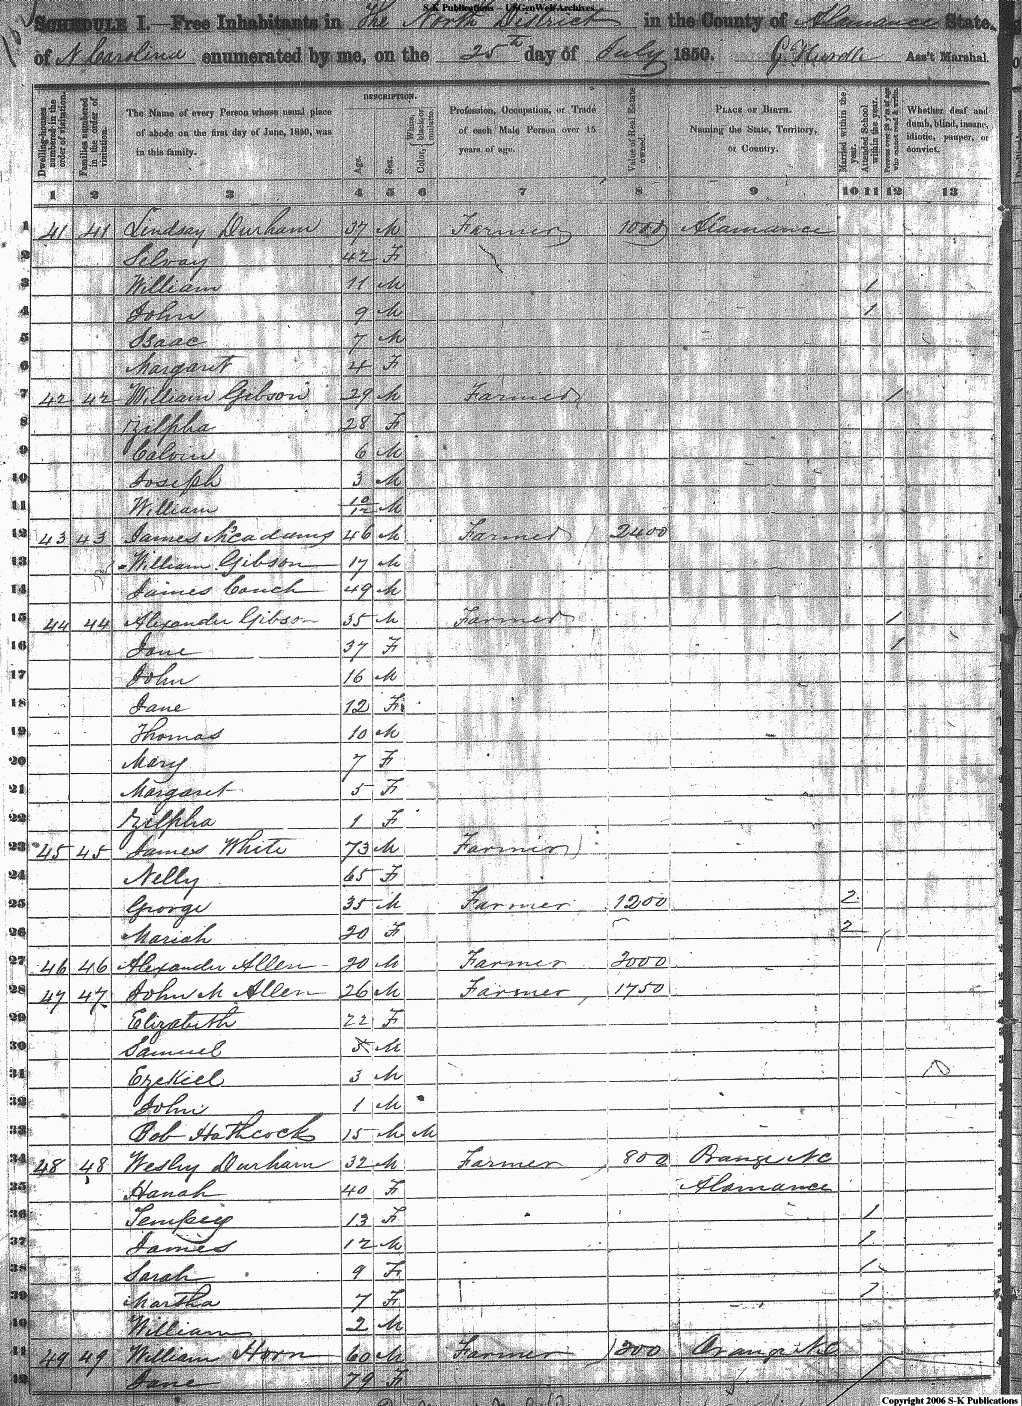 S-K Publications - USGenWeb Archives
SCHEDULE I.—Free Inhabitants in The North District in the County of Alamance State
of N Carolina enumerated by me, on the 25th day of July 1850. Ass't Marshal
Dwelling-houses numbered in the order of visitation. Families numbered in the order of visitation. The Name of every Person whose usual place of abode on the first day of June, 1850, was in this family. DESCRIPTION. Age. Sex. Color, White, black, or mulatto. Profession, Occupation, or Trade of each Male Person over 15 years of age. Value of Real Estate owned. PLACE OF BIRTH. Naming the State, Territory, or Country. Married within the year. Attended School within the year. Persons over 20 y'rs of age who cannot read & write. Whether deaf and dumb, blind, insane, idiotic, pauper, or convict.
1 2 3 4 5 6 7 8 9 10 11 12 13
1 41 41 Lindsay Durham 37 M Farmer 1000 Alamance
2 Selvay 42 F
3 William 11 M 1
4 John 9 M 1
5 Isaac 7 M
6 Margaret 4 F
7 42 42 William Gibson 29 M Farmer 1
8 Zilpha 28 F
9 Calvin 6 M
10 Joseph 3 M
11 William 10/12 M
12 43 43 James McAdams 46 M Farmer 2400
13 William Gibson 17 M
14 James Couch 49 M
15 44 44 Alexander Gibson 35 M Farmer 1
16 Jane 37 F 1
17 John 16 M
18 Jane 12 F
19 Thomas 10 M
20 Mary 7 F
21 Margaret 5 F
22 Zilpha 1 F
23 45 45 James White 73 M Farmer
24 Nelly 65 F
25 George 35 M Farmer 1200 2
26 Mariah 20 F 2
27 46 46 Alexander Allen 20 M Farmer 2000
28 47 47 John M Allen 26 M Farmer 1750
29 Elizabeth 22 F
30 Samuel 5 M
31 Ezekiel 3 M
32 John 1 M
33 Bob Hathcock 15 M M
34 48 48 Wesley Durham 32 M Farmer 800 Orange NC
35 Hanah 40 F Alamance
36 Tempey 13 F 1
37 James 12 M 1
38 Sarah 9 F 1
39 Martha 7 F 1
40 William 2 M
41 49 49 William Horn 60 M Farmer Orange NC
42 Jane 79 F
Copyright 2006 S-K Publications